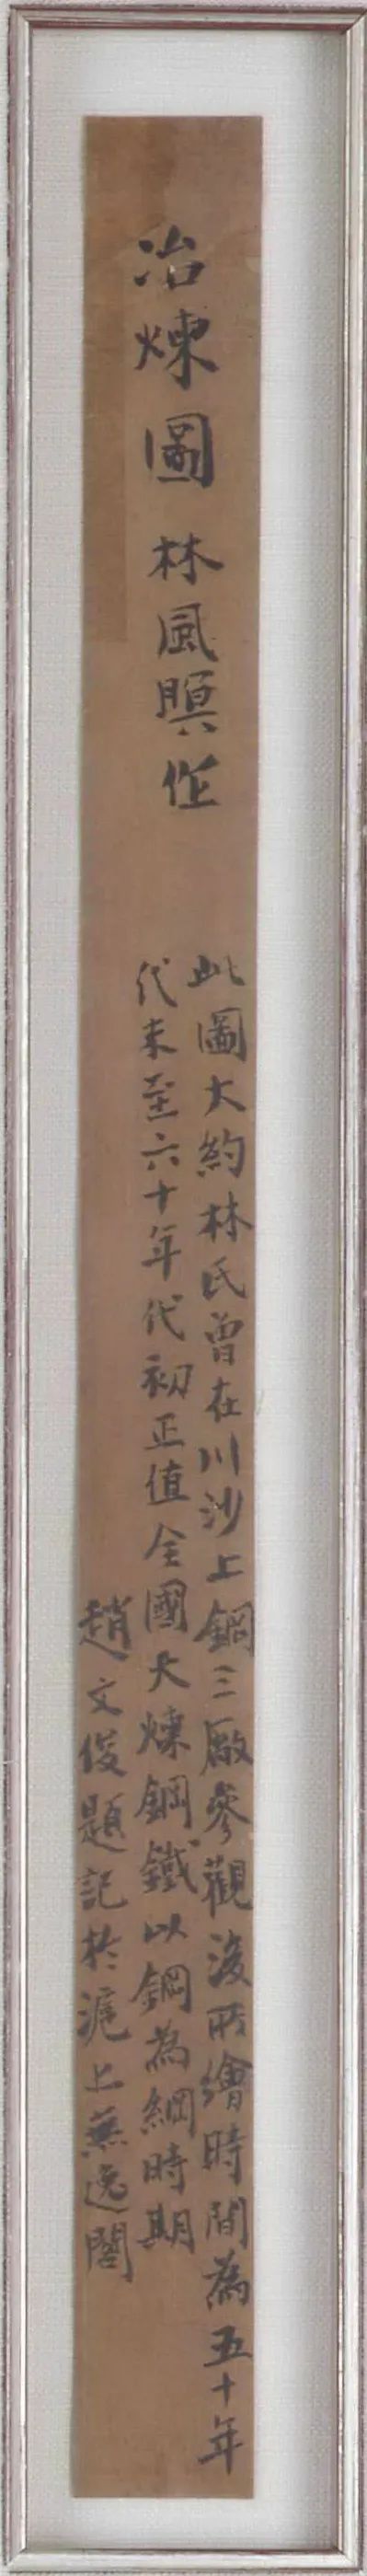 冶煉圖 林風瞑作
此圖大約林氏曾在川沙上鋼三廠參觀後所繪時間為五十年
代末至六十年代初正值全國大煉鋼鐵以鋼為綱時期
趙文俊題記於滬上無逸閣